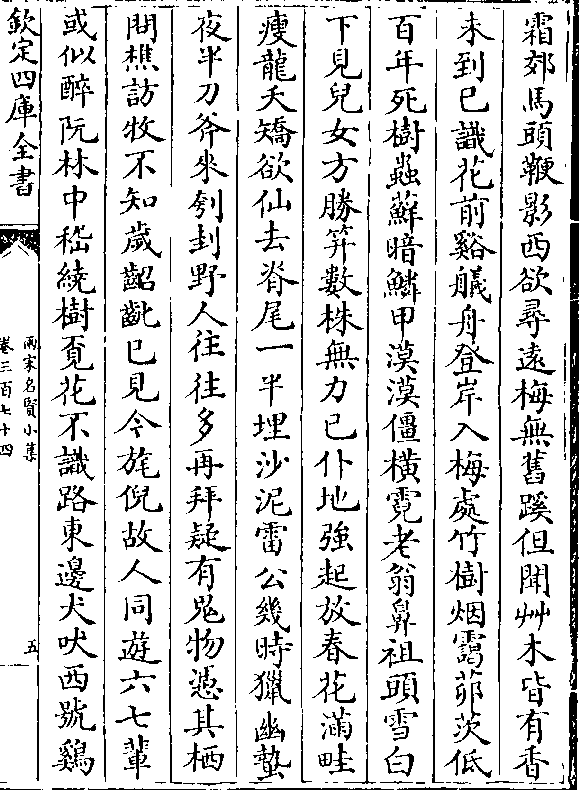 霜郊馬頭鞭影西欲尋遠梅無舊蹊但聞艸木皆有香
未到已識花前谿艤舟登岸入梅處竹樹烟靄茆茨低
百年死樹蟲蘚暗鱗甲漠漠僵橫霓老翁鼻祖頭雪白
下見兒女方勝筓數株無力已仆地強起放春花滿畦
瘦龍夭矯欲仙去脊尾一半埋沙泥雷公幾時獵幽蟄
夜半刀斧來刳刲野人往往多再拜疑有鬼物憑其栖
問樵訪牧不知歲齠齔已見今旄倪故人同遊六七輩
或似醉阮林中嵇繞樹覔花不識路東邊犬吠西號鷄
欽定四庫全書
兩宋名賢小集
卷三百七十四
五